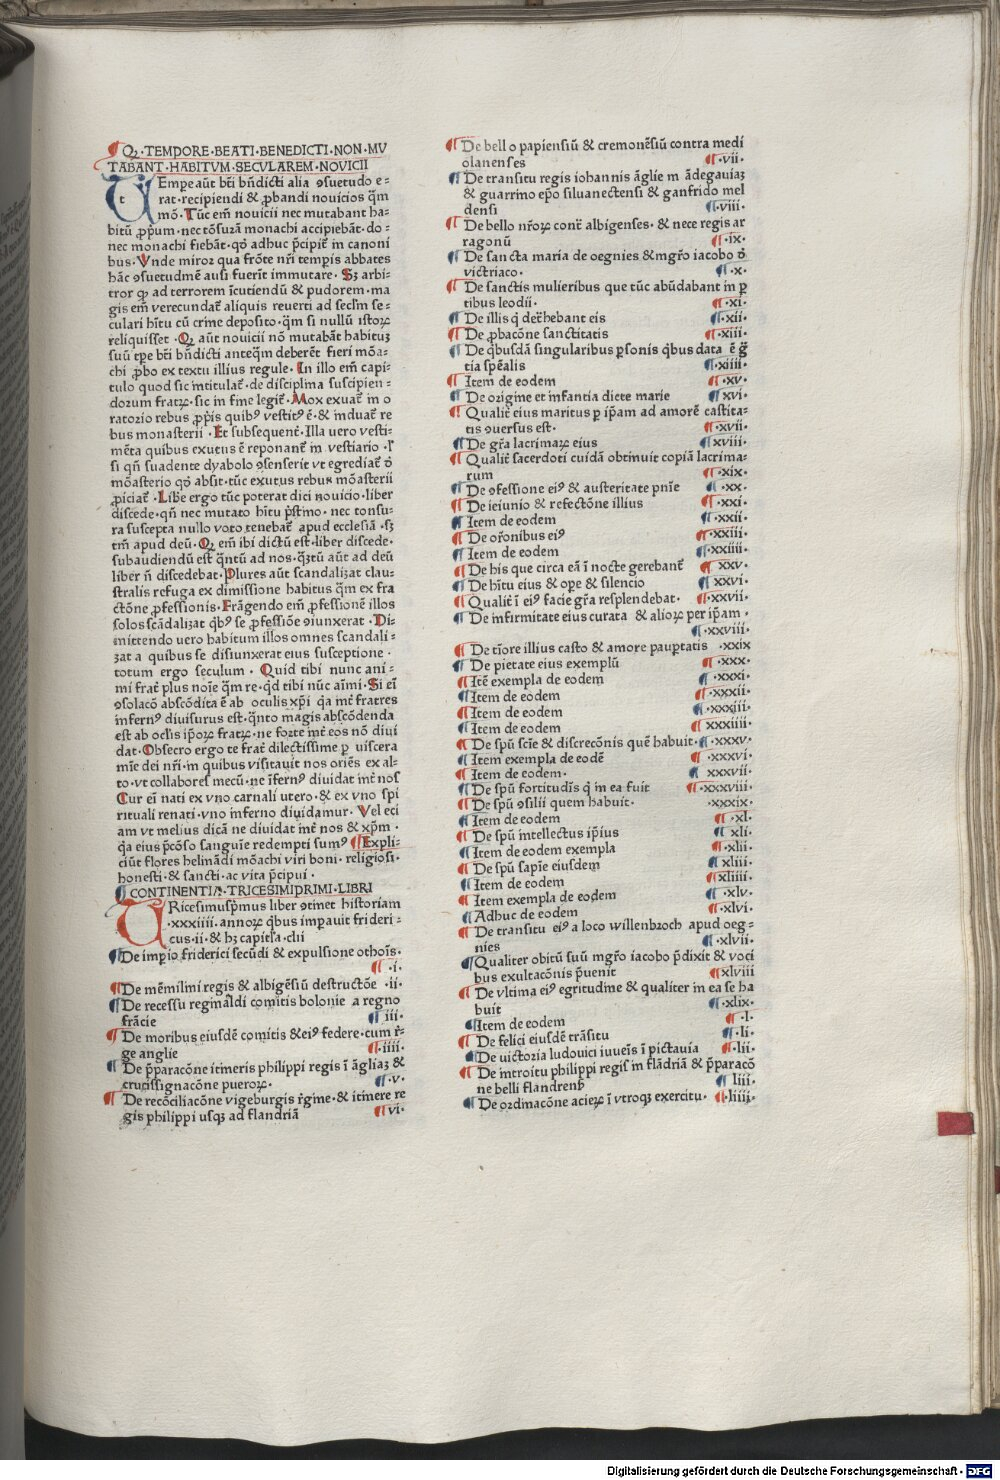 Qꝫ·TEMPORE·BEATI·BENEDICTI·NON·MV
TABANT·HABITVM·SECVLAREM·NOVICII
TEmpe aūt bti bn̄dicti alia ꝯsuetudo e⸗
rat·recipiendi & ꝓbandi nouicios q̄m
mō·Tūc em̄ nouicii nec mutabant ha⸗
bitū ꝓpꝛiū·nec tōsurā monachi accipiebāt·do⸗
nec monachi fiebāt·qd̄ adhuc p̄cipit̄ in canoni
bus·Vnde miroꝛ qua frōte nr̄i tempis abbates
hāc ꝯsuetudinē ausi fuerīt immutare·Sꝫ arbi⸗
tror ꝙ ad terrorem īcutiendū & pudorem·ma
gis em̄ verecundat̄ aliquis reuerti ad seclm̄ se⸗
culari hītu cū crīne deposito·q̄m si nullū istoꝝ
reliquisset·Qꝫ aūt nouicii nō mutabāt habitū
suū tpe bti bn̄dicti anteq̄m deberēt fieri mōa⸗
chi ꝓbo ex textu illius regule·In illo em̄ capi⸗
tulo quod sic intitulat̄·de disciplina suscipien⸗
dorum fratꝝ·sic in fine legit̄·Mox exuat̄ in o
ratorio rebus ꝓpꝛiis quibꝰ vestitꝰ ē·& induat̄ re
bus monasterii·Et subsequent̄·Illa uero vesti⸗
mēta quibus exutus ē reponant̄ in vestiario·ī
si qn̄ suadente dyabolo ꝯsenserit vt egrediat̄ d̄
mōasterio qd̄ absit·tūc exutus rebus mōasterii
ꝓiciat̄·Libe ergo tūc poterat dici nouicio·liber
discede·qn̄ nec mutato hītu pꝛistino·nec tonsu⸗
ra suscepta nullo voto tenebat̄ apud ecclesiā·sꝫ
tm̄ apud deū·Qꝫ em̄ ibi dictū est·liber discede·
subaudiendū est q̄ntū ad nos·q̄ntū aūt ad deū
liber n̄ discedebat·Plures aūt scandalizat clau⸗
stralis refuga ex dimissione habitus q̄m ex fra
ctōne ꝓfessionis·Frāgendo em̄ ꝓfessionē illos
solos scādalizat qbꝰ se ꝓfessiōe ꝯiunxerat·Di⸗
mittendo uero habitum illos omnes scandali⸗
zat a quibus se disiunxerat eius susceptione·
totum ergo seculum·Quid tibi nunc ani⸗
mi frat̄ plus noīe q̄m re·qd tibi nūc aīmi·Si eī
ꝯsolacō abscōdita ē ab oculis xp̄i qa int̄ fratres
infernꝰ diuisurus est·q̄nto magis abscōdenda
est ab oclis ipōꝝ fratꝝ·ne forte int̄ eos nō diui
dat·Obsecro ergo te frat̄ dilectissime p̄ uiscera
mīe dei nr̄i·in quibus visitauit nos oriēs ex al⸗
to·vt collabores mecū·ne īfernꝰ diuidat int̄ nos
Cur eī nati ex vno carnali utero·& ex vno spi
rituali renati·vno inferno diuidamur·Vel eci
am vt melius dicā ne diuidat int̄ nos & xp̄m·
qa eius p̄cōso sanguīe redempti sumꝰ Expli⸗
ciūt flores helinādi mōachi viri boni·religiosi·
honesti·& sancti·ac vita p̄cipui·
CONTINENTIA·TRICESIMIPRIMI·LIBRI
TRicesimuspꝛmus liber ꝯtinet historiam
·xxxiiii·annoꝝ qbus impauit frideri⸗
cus·ii·& hꝫ capitla·clii
De impio friderici secūdi & expulsione othois·
·i·
De mēmilini regis & albigēsiū destructōe ·ii·
De recessu reginaldi comitis bolonie a regno
frācie ·iii·
De moribus eiusdē comitis &eiꝰ federe·cum r̄⸗
ge anglie ·iiii·
De p̄paracōne itineris philippi regis ī āgliaꝫ &
crucissignacōne pueroꝝ· ·v·
De recōciliacōne vigeburgis r̄gine·& itinere re
gis philippi usqꝫ ad flandriā ·vi·
De bello papiensiū & cremonēsiū contra medi
olanenses ·vii·
De transitu regis iohannis āglie in ādegauiaꝫ
& guarrino epo siluanectensi & ganfrido mel
densi ·viii·
De bello nr̄oꝝ cont̄ albigenses·& nece regis ar
ragonū ·ix·
De sancta maria de oegnies &mgr̄o iacobo d̄
victriaco· ·x·
De sanctis mulieribus que tūc abūdabant in p
tibus leodii· ·xi·
De illis q̄ det̄hebant eis ·xii·
De ꝓbacōne sanctitatis ·xiii·
De qbusdā singularibus ꝑsonis qbus data ē ḡ
tia spēalis ·xiiii·
Item de eodem ·xv·
De origine et infantia dicte marie ·xvi·
Qualit̄ eius maritus p ip̄am ad amorē castita⸗
tis ꝯuersus est· ·xvii·
De gr̄a lacrimaꝝ eius ·xviii·
Qualit̄ sacerdoti cuidā obtinuit copiā lacrima⸗
rum ·xix·
De ꝯfessione eiꝰ & austeritate pnīe ·xx·
De ieiunio & refectōne illius ·xxi·
Item de eodem ·xxii·
De or̄onibus eiꝰ ·xxiii·
Item de eodem ·xxiiii·
De his que circa eā ī nocte gerebant̄ xxv·
De hītu eius & ope & silencio xxvi·
Qualit̄ ī eiꝰ facie gr̄a resplendebat· ·xxvii·
De infirmitate eius curata & alioꝝ per ip̄am·
·xxviii·
De tīore illius casto & amore pauptatis ·xxix
De pietate eius exemplū ·xxx·
Itē exempla de eodem ·xxxi·
Item de eodem ·xxxii·
Item de eodem ·xxxiii·
Item de eodem xxxiiii·
De spū scīe & discrecōnis quē habuit· ·xxxv·
Item exempla de eodē ·xxxvi·
Item de eodem· xxxvii·
De spū fortitudīs q̄ in ea fuit ·xxxviii·
De spū ꝯsilii quem habuit· ·xxxix·
Item de eodem ·xl·
De spū intellectus ipīus xli·
Item de eodem exempla ·xlii·
De spū sapīe eiusdem xliii·
Item de eodem xliiii·
Item exempla de eodem ·xlv·
Adhuc de eodem ·xlvi·
De transitu eiꝰ a loco willenbroch apud oeg⸗
nies ·xlvii·
Qualiter obitū suū mgr̄o iacobo p̄dixit & voci
bus exultacōnis p̄uenit xlviii
De vltima eiꝰ egritudine & qualiter in ea se ha
buit ·xlix·
Item de eodem ·l·
De felici eiusdē trāsitu ·li·
De uictoria ludouici iuueīs ī pictauia ·lii·
De introitu philippi regis in flādriā & p̄paracō
ne belli flandrenß liii·
De ordinacōne acieꝝ ī vtroqꝫ exercitu· ·liiii·
Digitalisierung gefördert durch die Deutsche Forschungsgemeinschaft - DFG